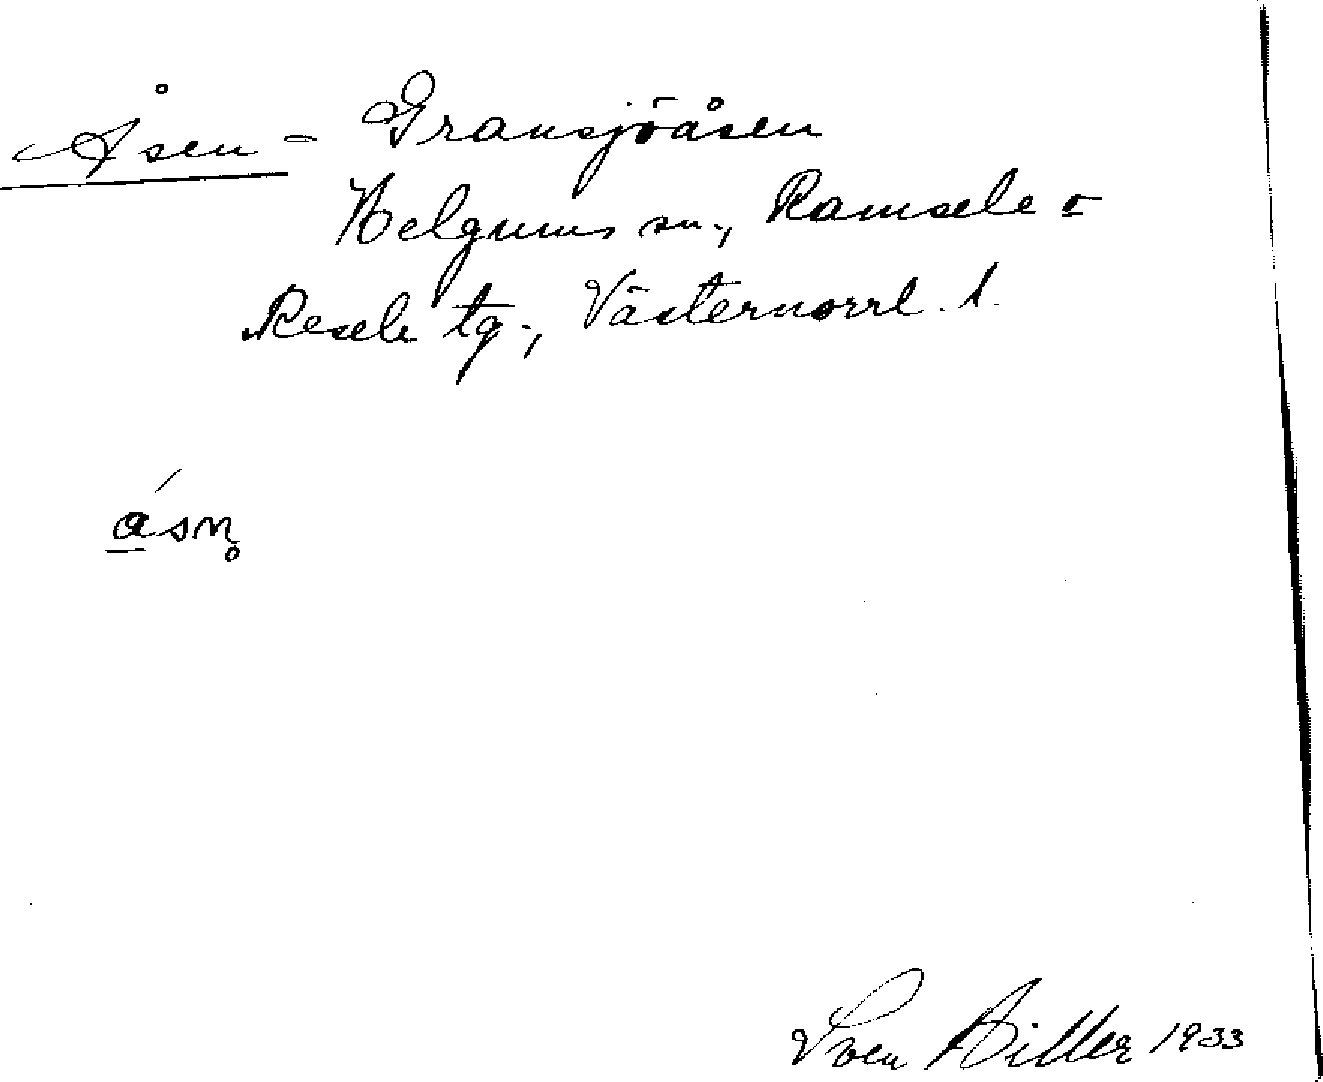 Åsen = Gransjöåsen
Helgums sn., Ramsele o
Resele tg., Västernorrl. l.
ásn̥
Sven Hiller 1933